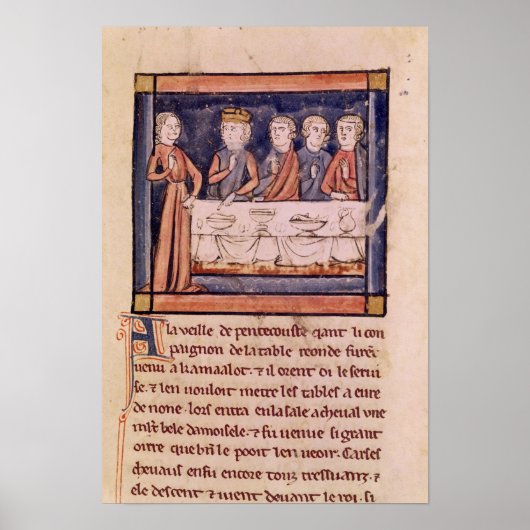 A la veille de pentecouste qant li con
paignon de la table reonde furẽt
venu a kamaalot · ⁊ il orent oi le servi
se · ⁊ len vouloit metre les tables a eure
de none · lors entra en la sale a cheval vne
mlt bele damoisele · ⁊ fu venue si grant
oirre que bñ le pooit len veoir · Car ses
chevaus en fu encore touz tressuanz · ⁊
ele descent ⁊ vient devant le roi · si